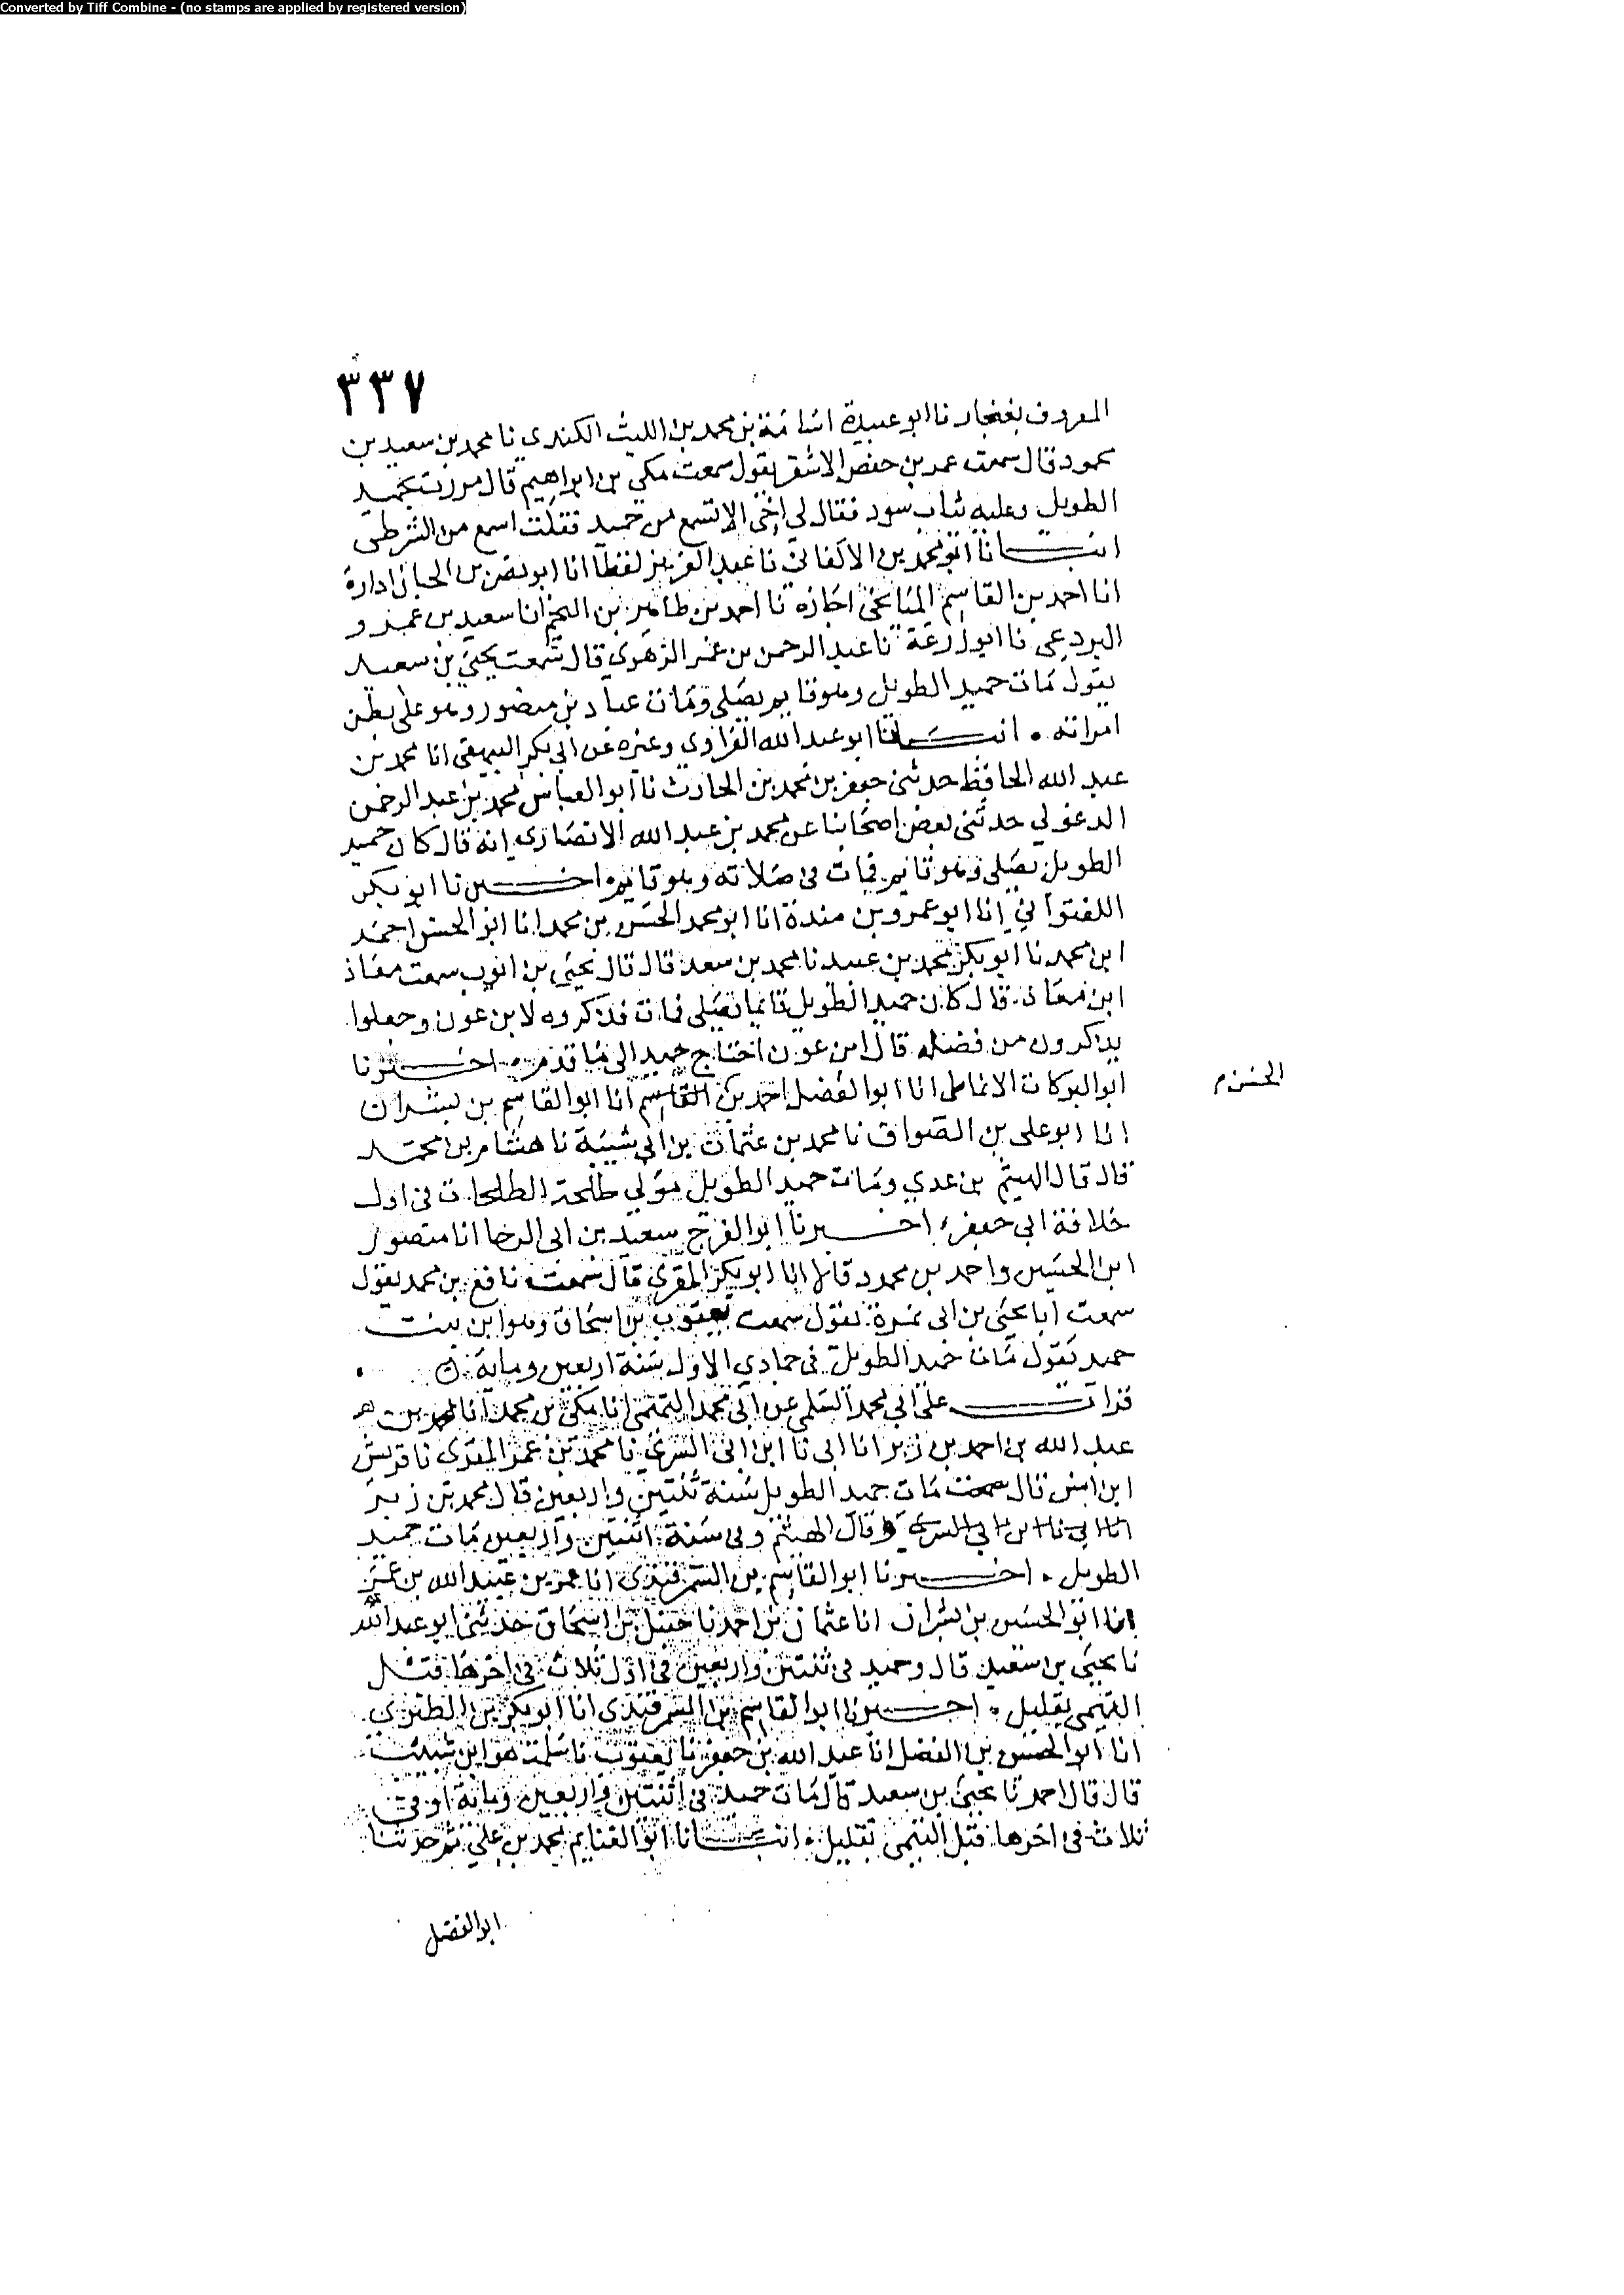 Converted by Tiff Combine - (no stamps are applied by registered version)
٣٣٧
المعروف بغنجار نا ابو عبيدة اسامة بن محمد بن الليث الكندي نا محمد بن سعيد بن
محمود قال سمعت عمر بن حفص الاشقر يقول سمعت مكي بن ابراهيم قال مررت بحميد
الطويل وعليه ثياب سود فقال لي اخي الا تسمع من حميد فقلت اسمع من الشرطي
انبانا ابو محمد بن الاكفاني نا عبد العزيز لفظا انا ابو نصر بن الجبان اداره
انا احمد بن القاسم الميانجي اجازه نا احمد بن طاهر بن النجم انا سعيد بن عمرو
البردعي نا ابو زرعة نا عبد الرحمن بن عمر الزهري قال سمعت يحيى بن سعيد
يقول مات حميد الطويل وهو قايم يصلي ومات عباد بن منصور وهو على بطن
امراته . انبانا ابو عبد الله الفراوي وغيره عن ابي بكر البيهقي انا محمد بن
عبد الله الحافظ حدثني جعفر بن محمد بن الحارث نا ابو العباس محمد بن عبد الرحمن
الدغولي حدثني بعض اصحابنا عن محمد بن عبد الله الانصاري انه قال كان حميد
الطويل يصلي وهو قايم فمات في صلاته وهو قايم . اخبرنا ابو بكر
اللفتواني انا ابو عمرو بن مندة انا ابو محمد الحسن بن محمد انا ابو الحسن احمد
ابن محمد نا ابو بكر محمد بن عبيد نا محمد بن سعد قال قال يحيى بن ايوب سمعت معاذ
ابن معاذ قال كان حميد الطويل قايما يصلي فمات فذكروه لابن عون وجعلوا
يذكرون من فضله قال ابن عون احتاج حميد الى ما قدم . اخبرنا
ابو البركات الانماطي انا ابو الفضل احمد بن القاسم انا ابو القاسم بن بشران
الحسن م
انا ابو علي بن الصواف نا محمد بن عثمان بن ابي شيبة نا هشام بن محمد
قال قال الهيثم بن عدي ومات حميد الطويل مولي طلحة الطلحات في اول
خلافة ابي جعفر . اخبرنا ابو الفرج سعيد بن ابي الرجا انا منصور
ابن الحسين واحمد بن محمود قالا انا ابو بكر المقري قال سمعت نافع بن محمد يقول
سمعت ابا يحيى بن ابي مسرة يقول سمعت يعقوب بن اسحاق وهو ابن بنت
حميد يقول مات حميد الطويل في جمادي الاول سنة اربعين وماية . ه
قرات على ابي محمد السلمي عن ابي محمد التميمي انا مكي بن محمد انا محمد بن
عبد الله بن احمد بن زبر انا ابي نا ابن ابي السري نا محمد بن عمر المقدمي نا قريش
ابن انس قال سمعت مات حميد الطويل سنة ثنتين واربعين قال محمد بن زبر
انا ابي نا ابن ابي السري وقال الهيثم وفي سنة اثنتين واربعين مات حميد
الطويل . اخبرنا ابو القاسم بن السمرقندي انا عمر بن عبيد الله بن عمر
انا ابو الحسين بن بشران انا عثمان بن احمد نا حنبل بن اسحاق حدثني ابو عبد الله
نا يحيى بن سعيد قال وحميد في ثنتين واربعين في اول ثلاث في اخرها قبل
التيمي بقليل . اخبرنا ابو القاسم بن السمرقندي انا ابو بكر بن الطبري
انا ابو الحسين بن الفضل انا عبد الله بن جعفر نا يعقوب نا سلمة هو ابن شبيب
قال قال احمد نا يحيى بن سعيد قال مات حميد في اثنتين واربعين وماية او في
ثلاث في اخرها قبل التيمي بقليل . انبانا ابو الغنايم محمد بن علي ثم حدثنا
ابو الفضل